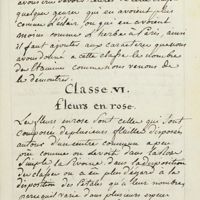 quelques genres qui en avoient
moins comme l'herbe à Paris, aussi
il faut ajouter aux caractères que nous
avons donné a cette classe le nombre
de Etamines comme nous venons de
le démontrer.
Classe VI.
fleurs en rose.
Les fleurs en rose sont celles qui sont
composées de plusieurs feuilles disposées
autour d'un centre commun a peu
près comme on le voit dans la Rose
simple la Pivoine dans la disposition
des classes on a eu plus d'égard a la
disposition des Petales qu'a leur nombre
parcequ'il varie dans plusieurs especes